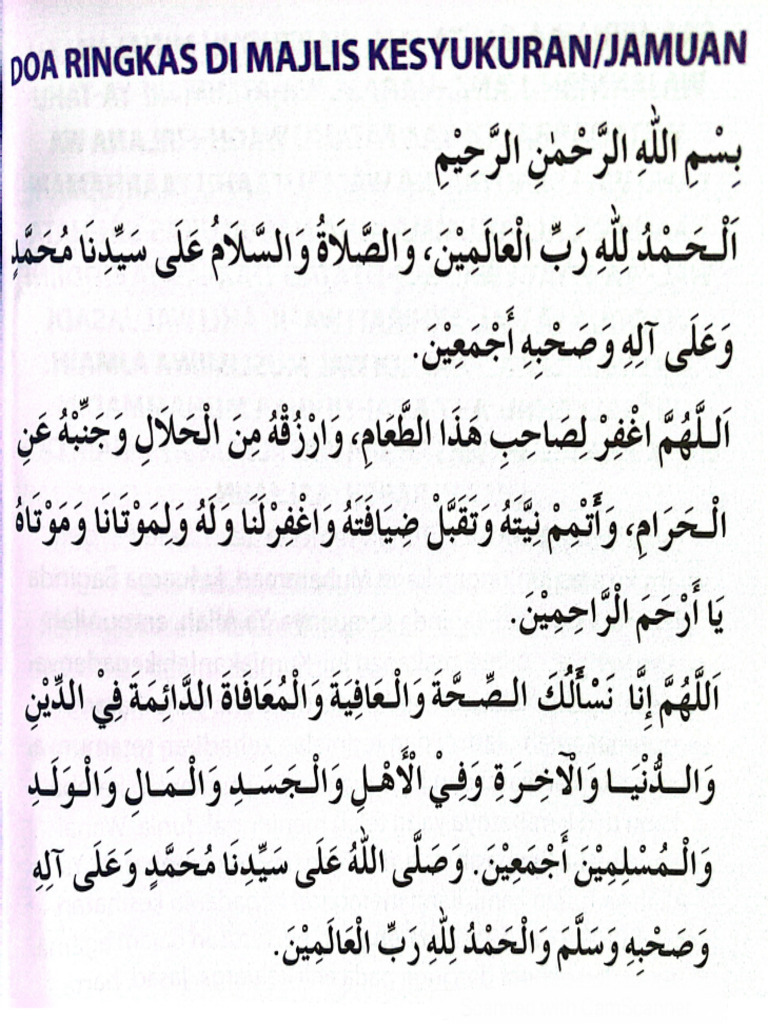 DOA RINGKAS DI MAJLIS KESYUKURAN/JAMUAN
بِسْمِ اللهِ الرَّحْمَنِ الرَّحِيْمِ
اَلْحَمْدُ لِلّٰهِ رَبِّ الْعَالَمِيْنَ، وَالصَّلَاةُ وَالسَّلَامُ عَلَى سَيِّدِنَا مُحَمَّدٍ
وَعَلَى آلِهِ وَصَحْبِهِ أَجْمَعِيْنَ.
اَللَّهُمَّ اغْفِرْ لِصَاحِبِ هَذَا الطَّعَامِ، وَارْزُقْهُ مِنَ الْحَلَالِ وَجَنِّبْهُ عَنِ
الْحَرَامِ، وَأَتْمِمْ نِيَّتَهُ وَتَقَبَّلْ ضِيَافَتَهُ وَاغْفِرْلَنَا وَلَهُ وَلِمَوْتَانَا وَمَوْتَاهُ
يَا أَرْحَمَ الْرَّاحِمِيْنَ.
اَللَّهُمَّ إِنَّا نَسْأَلُكَ الصِّحَّةَ وَالْعَافِيَةَ وَالْمُعَافَاةَ الدَّائِمَةَ فِيْ الدِّيْنِ
وَالدُّنْيَا وَالْآخِرَةِ وَفِيْ الْأَهْلِ وَالْجَسَدِ وَالْمَالِ وَالْوَلَدِ
وَالْمُسْلِمِيْنَ أَجْمَعِيْنَ. وَصَلَّى اللهُ عَلَى سَيِّدِنَا مُحَمَّدٍ وَعَلَى آلِهِ
وَصَحْبِهِ وَسَلَّمَ وَالْحَمْدُ لِلّٰهِ رَبِّ الْعَالَمِيْنَ.